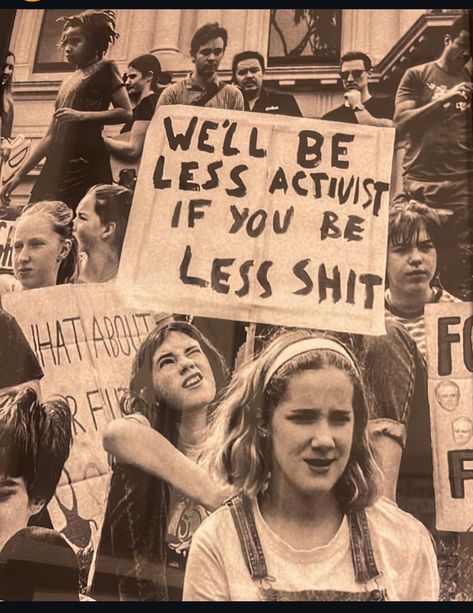 WE'LL BE
LESS ACTIVIST
IF YOU BE
LESS SHIT
WHAT ABOUT